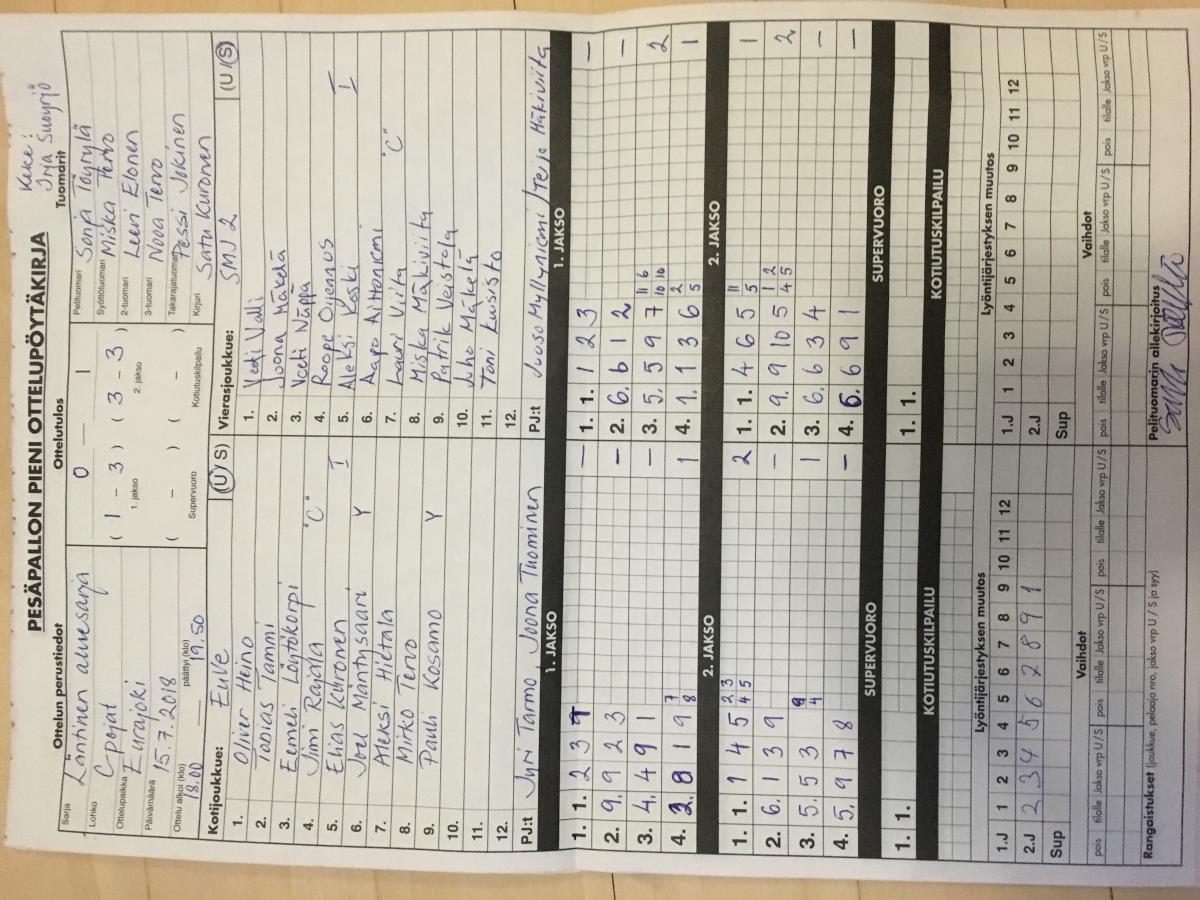 PESÄPALLON PIENI OTTELUPÖYTÄKIRJA
Ottelun perustiedot
Sarja Läntinen aluesarja
Lohko C pojat
Ottelupaikka Eurajoki
Päivämäärä 15.7.2018
Ottelu alkoi (klo) 18.00 päättyi (klo) 19.50
Ottelutulos
0 — 1
( 1 - 3 ) ( 3 - 3 )
1. jakso 2. jakso
( - ) ( - )
Supervuoro Kotiutuskilpailu
Tuomarit
Irja Suoyrjö
Pelituomari Sonja Töyrylä
Syöttötuomari Miska Tervo
2-tuomari Leevi Elonen
3-tuomari Nooa Tervo
Takarajatuomari Pessi Jokinen
Kirjuri Satu Kuronen
Kotijoukkue: EuVe (U/S)
1. Oliver Heino
2. Topias Tammi
3. Eemeli Löytökorpi
4. Jimi Rajala "C"
5. Elias Kuronen I
6. Joel Mäntysaari Y
7. Aleksi Hietala
8. Mirko Tervo
9. Pauli Kosamo Y
10.
11.
12.
PJ:t Jyri Tarmo, Joona Tuominen
Vierasjoukkue: SMJ 2 (U/S)
1. Veeti Valli
2. Joona Mäkelä
3. Veeti Näppä
4. Roope Ojennus
5. Aleksi Koski I
6. Aapo Aittoniemi
7. Lauri Viita "C"
8. Miska Mäkiviita
9. Patrik Veistola
10. Juho Mäkelä
11. Toni Kuisisto
12.
PJ:t Juuso Myllyniemi / Teija Mäkiviita
1. JAKSO
1. 1. 2 3 –
2. 9. 9 2 3 –
3. 4. 4 9 1 –
4. 8 1 9 7 8 1
2. JAKSO
1. 1. 1 4 5 2 3 4 5 2
2. 6. 1 3 9 –
3. 5. 5 3 9 4 1
4. 5. 9 7 8 –
SUPERVUORO
1. 1.
KOTIUTUSKILPAILU
1. JAKSO
1. 1. 1 2 3 –
2. 6. 6 1 2 –
3. 5. 5 9 7 11 6 10 10 2
4. 1. 1 3 6 2 5 1
2. JAKSO
1. 1. 4 6 5 11 5 1
2. 9. 9 10 5 1 2 4 5 2
3. 6. 6 3 4 –
4. 6. 6 9 1 –
SUPERVUORO
1. 1.
KOTIUTUSKILPAILU
Lyöntijärjestyksen muutos
1.J 1 2 3 4 5 6 7 8 9 10 11 12
2.J 2 3 4 5 6 2 8 9 1
Sup
Lyöntijärjestyksen muutos
1.J 1 2 3 4 5 6 7 8 9 10 11 12
2.J
Sup
Vaihdot
pois tilalle Jakso vrp U/S pois tilalle Jakso vrp U/S pois tilalle Jakso vrp U/S
Vaihdot
pois tilalle Jakso vrp U/S pois tilalle Jakso vrp U/S pois tilalle Jakso vrp U/S
Rangaistukset (joukkue, pelaaja nro, jakso vrp U / S ja syy)
Pelituomarin allekirjoitus